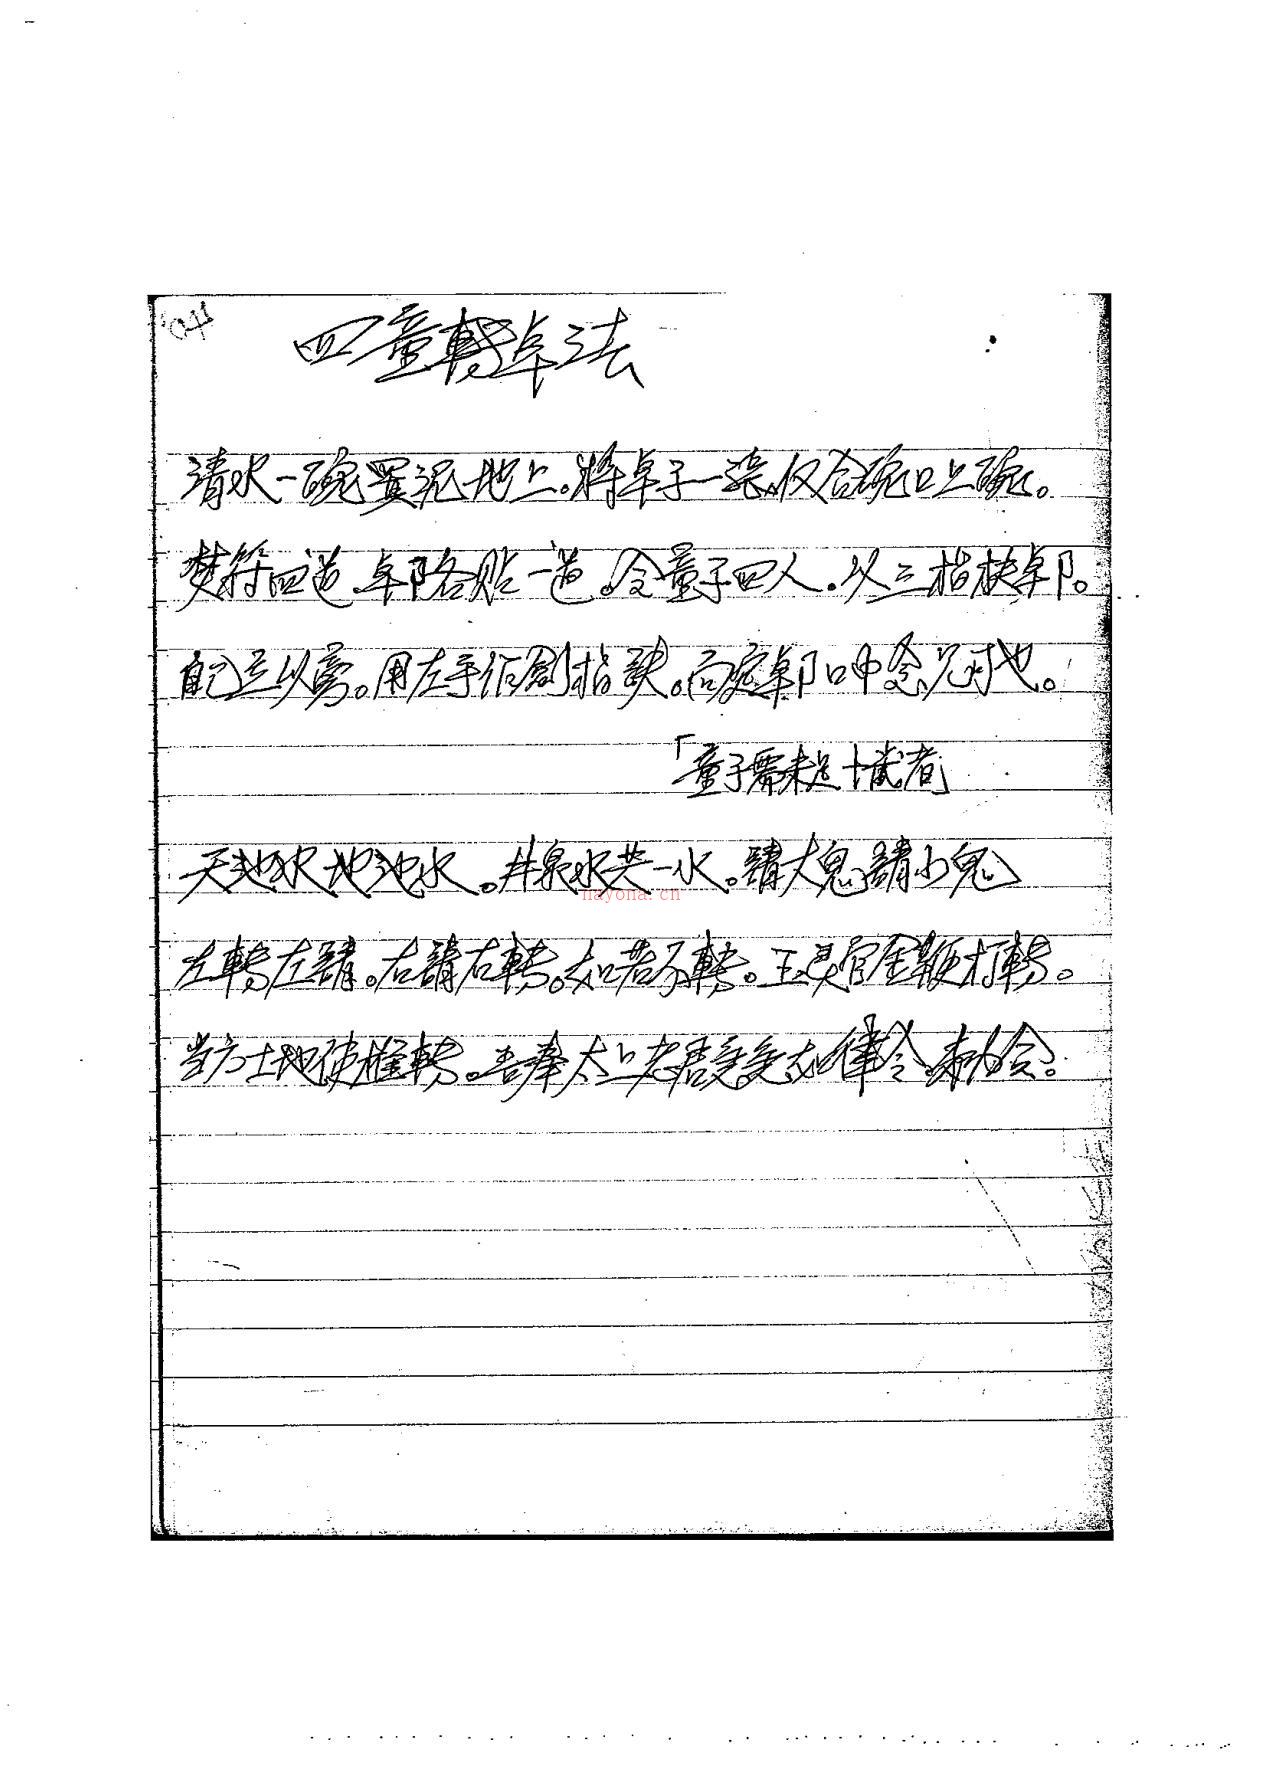 四童轉卓法
清水一碗置泥地上。將卓子一張仅合碗口上碗。
焚符四道.卓脚各貼一道。令童子四人.以三指扶卓脚。
自己立以旁。用左手作劍指訣。向庭卓脚口中念咒可也。
「童子需未足十歲者」
天池水地池水。井泉水共一水。請大鬼請小鬼
左轉左請。右請右轉。如若不轉。王灵官金鞭打轉。
当方土地使推轉。吾奉太上老君急急如律令。
nayona.cn